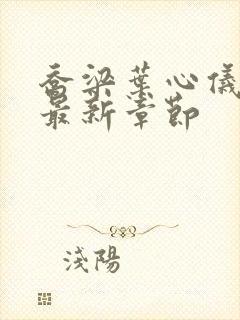 喬梁葉心儀
最新章節
淺陽